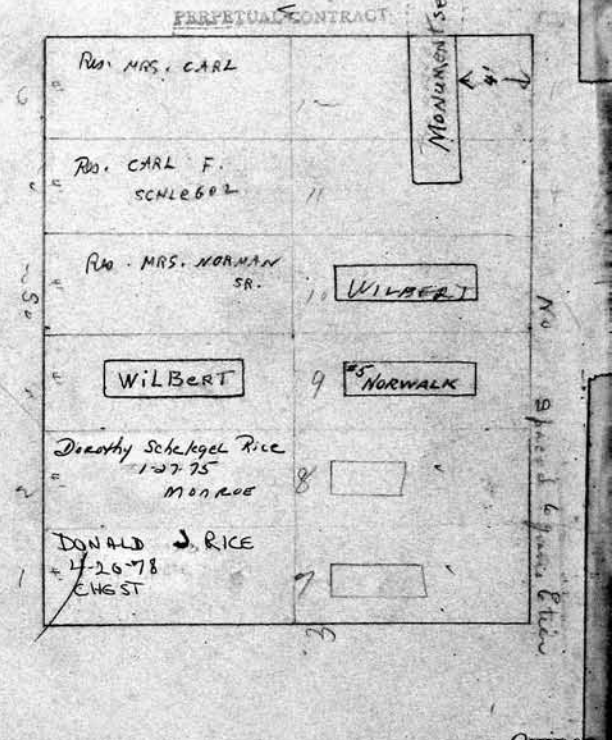 PERPETUAL CONTRACT
Res. MRS. CARL
MONUMENT
4'
6
12
Res. CARL F.
SCHLEGEL
11
Res. MRS. NORMAN
SR.
10
WILBERT
No
WILBERT
9
#5 NORWALK
2
Dorothy Schelegel Rice
1-27-75
MONROE
8
1
DONALD J. RICE
4-26-78
CHEST
7